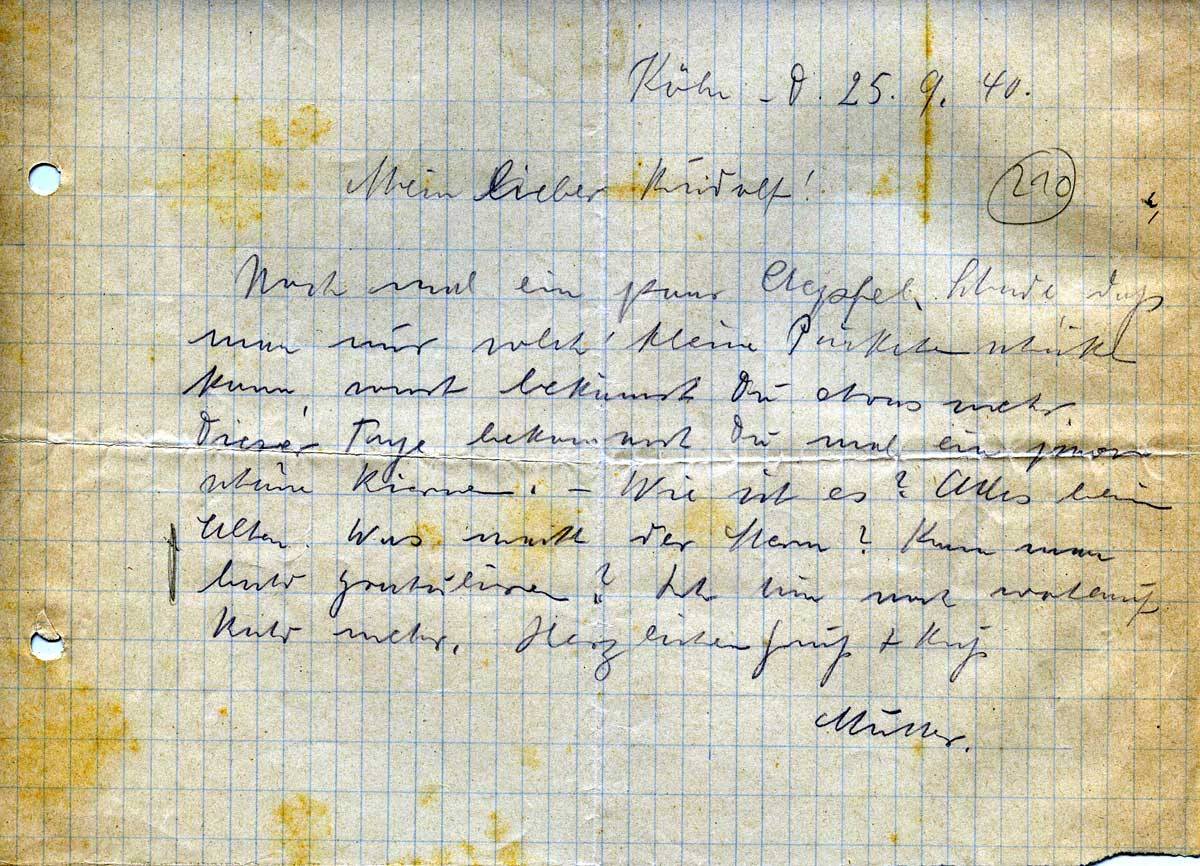 Köln – d. 25. 9. 40.
Mein lieber Rudolf!
210
Noch mal ein paar Aepfel. Schade daß
man nur solch' kleine Päckchen schicken
kann, sonst bekämst Du etwas mehr.
Dieser Tage bekommst Du mal ein paar
schöne Birnen. – Wie ist es? Alles beim
Alten. Was macht der Stern? Kann man
bald gratulieren? Ich bin noch wohlauf
bald mehr. Herzlichen Gruß + Kuß
Mutter.